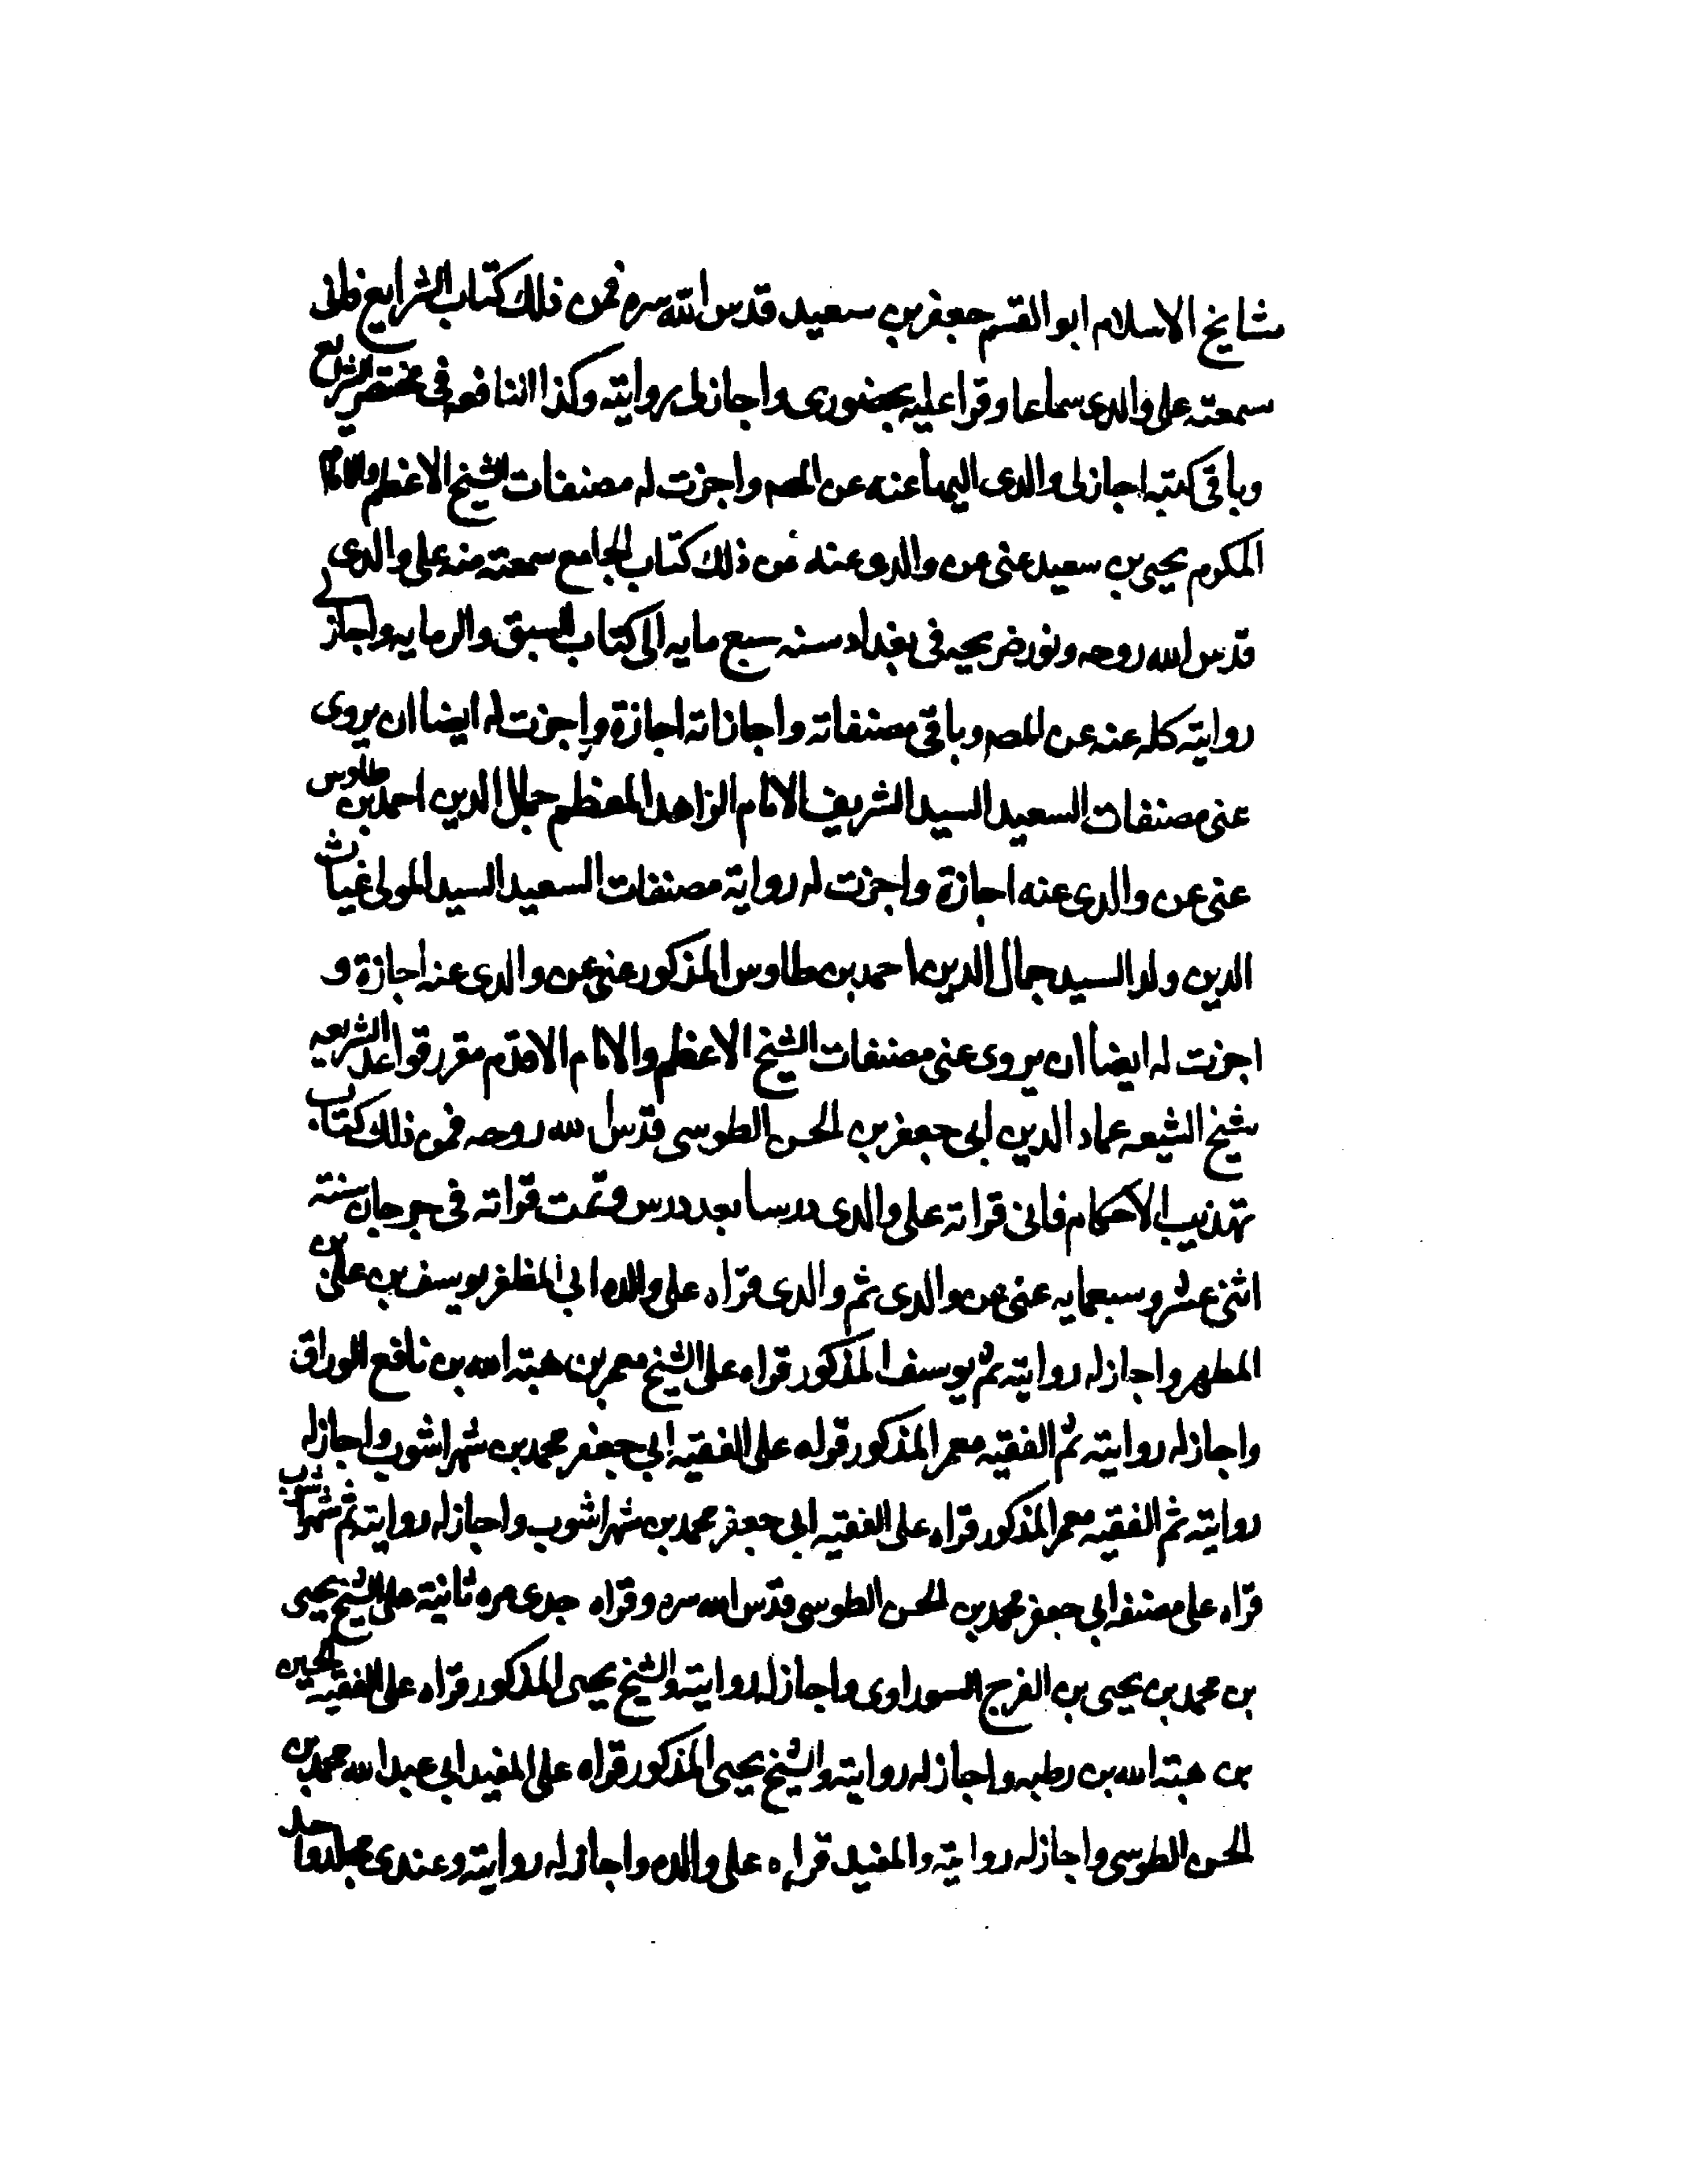 مشايخ الاسلام ابو القسم جعفر بن سعيد قدس الله سره فمن ذلك كتاب الشرايع فانى
سمعته على والدى سماعا وقرا عليه بحضورى واجاز لى روايته وكذا النافع فى مختصر الشرايع
وباقى كتبه اجاز لى والدى عنه عن المصه واجزت له مصنفات الشيخ الاعظم والامام
المكرم يحيى بن سعيد عنى عن والدى عنه فمن ذلك كتاب الجامع سمعته منه على والدى
قدس الله روحه ونور ضريحه فى بغداد سنه سبع مايه الى كتاب السبق والرمايه واجاز لى
روايته كله عنه عن المصه وباقى مصنفاته واجازاته اجازة واجزت له ايضا ان يروى
عنى مصنفات السعيد السيد الشريف الامام الزاهد المعظم جمال الدين احمد بن طاوس
عنى عن والدى عنه اجازة واجزت له رواية مصنفات السعيد السيد المولى غياث
الدين ولد السيد جمال الدين احمد بن طاوس المذكور عنى عن والدى عنه اجازة و
اجزت له ايضا ان يروى عنى مصنفات الشيخ الاعظم والامام الاقدم مقرر قواعد الشريعه
شيخ الشيعه عماد الدين ابى جعفر بن الحسن الطوسى قدس الله روحه فمن ذلك كتاب
تهذيب الاحكام فانى قراته على والدى درسا بعد درس وتمت قراته فى جرجان سنة
اثنى عشر وسبعمايه عنى عن والدى ثم والدى قراه على والده ابى المظفر يوسف بن على بن
المطهر واجاز له روايته ثم يوسف المذكور قراه على الشيخ معمر بن هبة الله بن نافع الوراق
واجاز له روايته ثم الفقيه معمر المذكور قراه على الفقيه ابى جعفر محمد بن شهراشوب واجاز له
روايته ثم الفقيه معمر المذكور قراه على الفقيه ابى جعفر محمد بن شهراشوب واجاز له روايته ثم شهراشوب
قراه على مصنفه ابى جعفر محمد بن الحسن الطوسى قدس الله سره وقراه جدى مره ثانية على الشيخ يحيى
بن محمد بن يحيى بن الفرج السوراوى واجاز له روايته والشيخ يحيى المذكور قراه على الفقيه الحسين
بن هبة الله بن رطبه واجاز له روايته والشيخ يحيى المذكور قراه على المفيد ابى عبد الله محمد بن
الحسن الطوسى واجاز له روايته والمفيد قراه على والده واجاز له روايته وعندى مجلد واحد